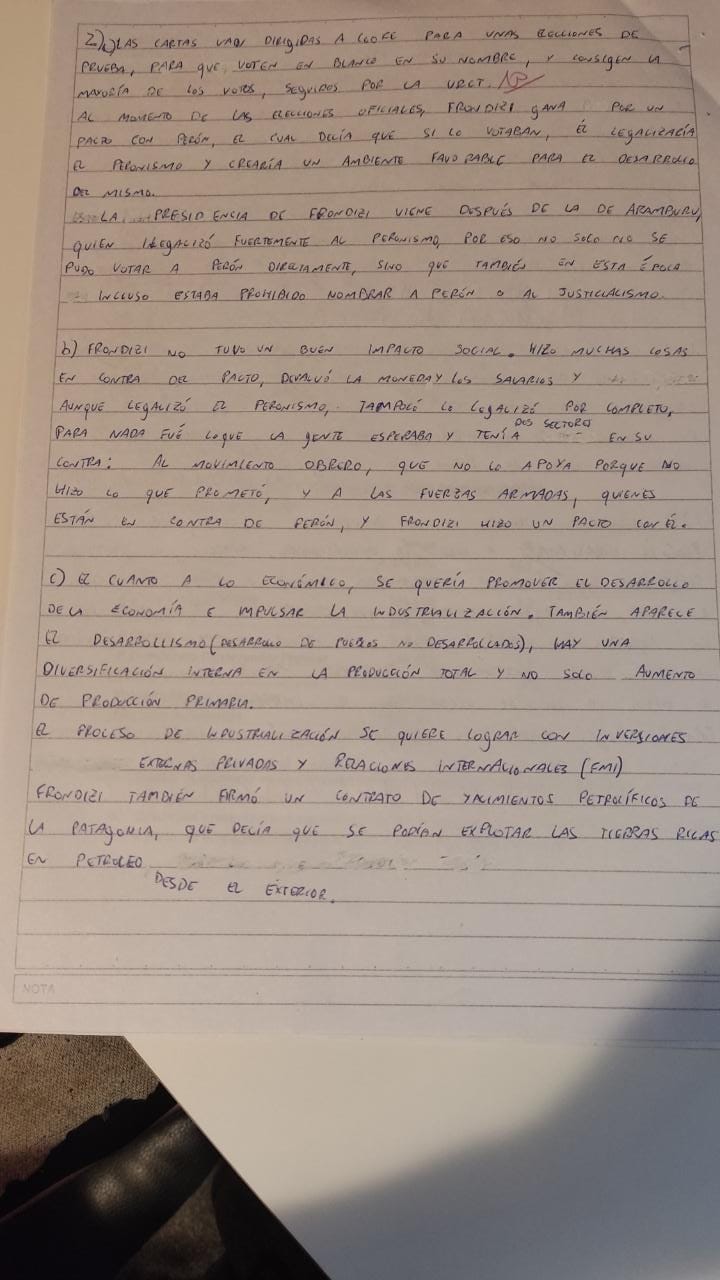 2)a) LAS CARTAS VAN DIRIGIDAS A COOKE PARA UNAS ELECCIONES DE
PRUEBA, PARA QUE VOTEN EN BLANCO EN SU NOMBRE, Y CONSIGEN LA
MAYORÍA DE LOS VOTOS, SEGUIDOS POR LA
AL MOMENTO DE LAS ELECCIONES OFICIALES, FRONDIZI GANA POR UN
PACTO CON PERÓN, EL CUAL DECÍA QUE SI LO VOTABAN, ÉL LEGALIZARÍA
EL PERONISMO Y CREARÍA UN AMBIENTE FAVORABLE PARA EL DESARROLLO
DEL MISMO.
LA PRESIDENCIA DE FRONDIZI VIENE DESPUÉS DE LA DE ARAMBURU,
QUIEN ILEGALIZÓ FUERTEMENTE AL PERONISMO, POR ESO NO SOLO NO SE
PUDO VOTAR A PERÓN DIRECTAMENTE, SINO QUE TAMBIÉN EN ESTA ÉPOCA
INCLUSO ESTABA PROHIBIDO NOMBRAR A PERÓN O AL JUSTICIALISMO.
b) FRONDIZI NO TUVO UN BUEN IMPACTO SOCIAL. HIZO MUCHAS COSAS
EN CONTRA DEL PACTO, DEVALUÓ LA MONEDA Y LOS SALARIOS Y
AUNQUE LEGALIZÓ EL PERONISMO, TAMPOCO LO LEGALIZÓ POR COMPLETO,
PARA NADA FUÉ LO QUE LA GENTE ESPERABA Y TENÍA DOS SECTORES EN SU
CONTRA: AL MOVIMIENTO OBRERO, QUE NO LO APOYA PORQUE NO
HIZO LO QUE PROMETÓ, Y A LAS FUERZAS ARMADAS, QUIENES
ESTÁN EN CONTRA DE PERÓN, Y FRONDIZI HIZO UN PACTO CON ÉL.
c) EL CUANTO A LO ECONÓMICO, SE QUERÍA PROMOVER EL DESAROLLO
DE LA ECONOMÍA E IMPULSAR LA INDUSTRIALIZACIÓN. TAMBIÉN APARECE
EL DESAROLLISMO (DESAROLLO DE PUEBLOS NO DESARROLLADOS), HAY UNA
DIVERSIFICACIÓN INTERNA EN LA PRODUCCIÓN TOTAL Y NO SOLO AUMENTO
DE PRODUCCIÓN PRIMARIA.
EL PROCESO DE INDUSTRIALIZACIÓN SE QUIERE LOGRAR CON INVERSIONES
EXTERNAS PRIVADAS Y RELACIONES INTERNACIONALES (FMI)
FRONDIZI TAMBIÉN FIRMÓ UN CONTRATO DE YACIMIENTOS PETROLÍFICOS DE
LA PATAGONIA, QUE DECÍA QUE SE PODÍAN EXPLOTAR LAS TIERRAS RICAS
EN PETROLEO
DESDE EL EXTERIOR.
NOTA